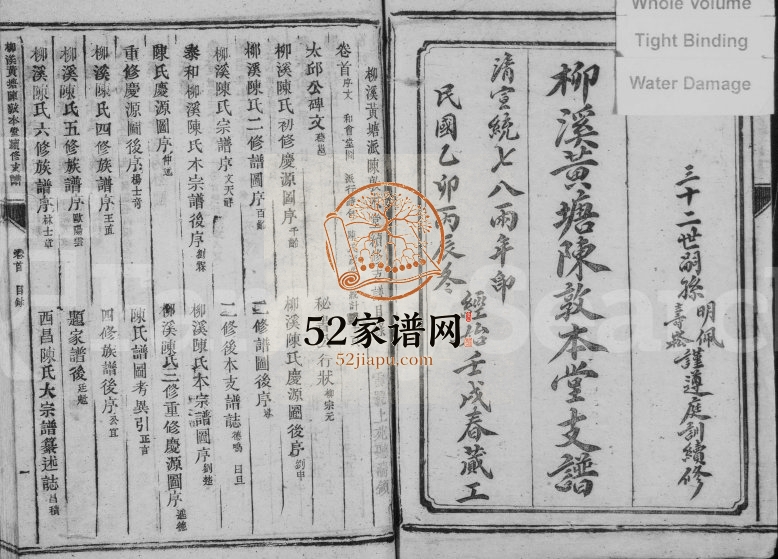 Whole Volume
Tight Binding
Water Damage
三十二世嗣孫明佩壽崧謹遵庭訓續修
柳溪黃塘陳敦本堂支譜
清宣統七八兩年印
民國乙卯丙辰冬
經始壬戌春蕆工
柳溪黃塘派陳
卷首
太邱公碑文
柳溪陳氏初修慶源圖序
柳溪陳氏慶源圖後序
柳溪陳氏二修譜圖序
修譜圖後序
柳溪陳氏宗譜序 文天祥
二修後本支譜誌
泰和柳溪陳氏本宗譜後序
柳溪陳氏本宗譜圖序 劉楚
陳氏慶源圖序
柳溪陳氏三修重修慶源圖序
重修慶源圖後序
陳氏譜圖考異引
柳溪陳氏四修族譜序 王直
四修族譜後序
柳溪陳氏五修族譜序
題家譜後
柳溪陳氏六修族譜序
西昌陳氏大宗譜纂述誌 昌積
柳溪黃塘陳敦本堂續修支譜
卷首 目錄
一
52家谱网
52jiapu.com